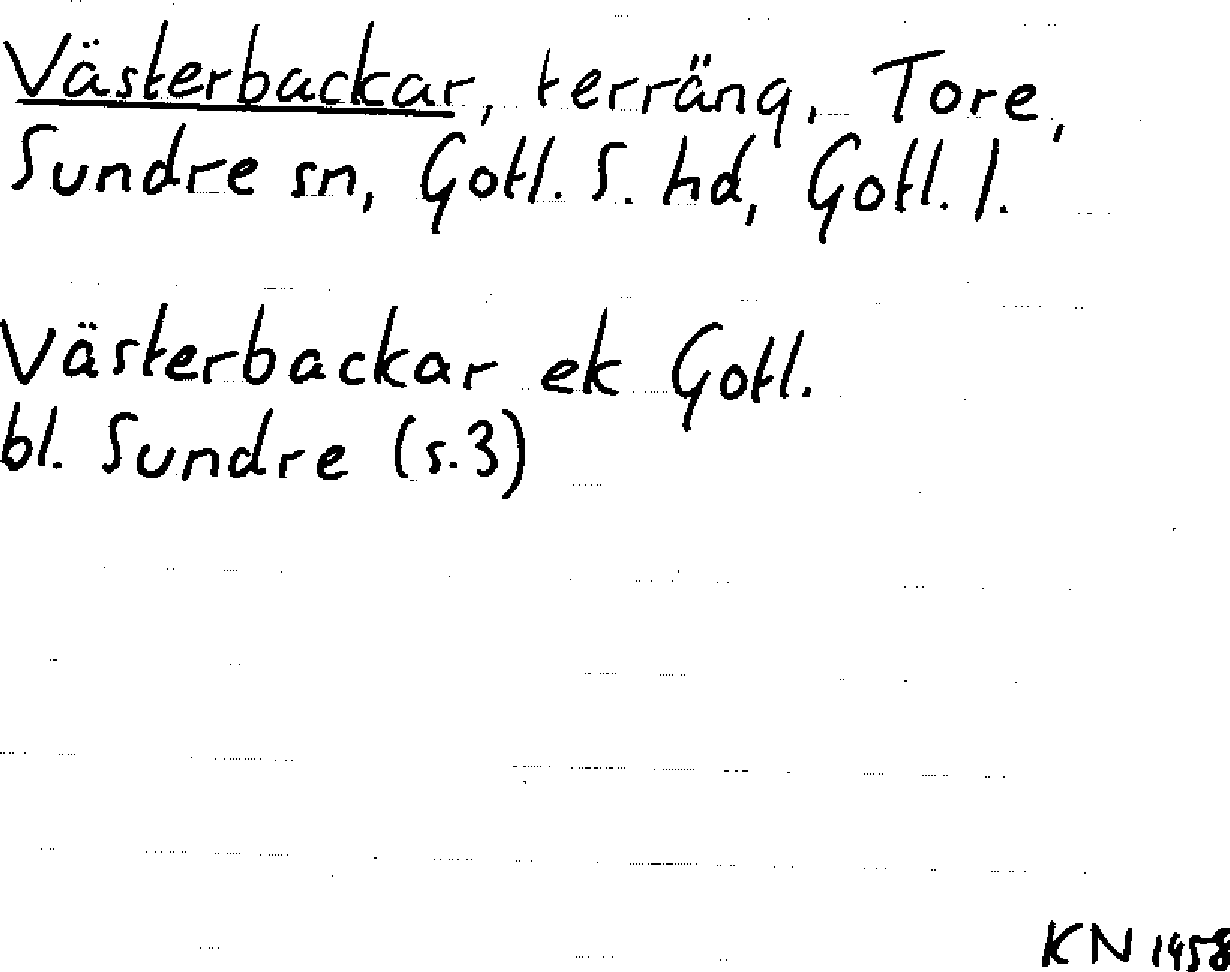 Västerbackar, terräng, Tore,
Sundre sn, Gotl. S. hd, Gotl. l.
Västerbackar ek Gotl.
bl. Sundre (s.3)
KN 1958